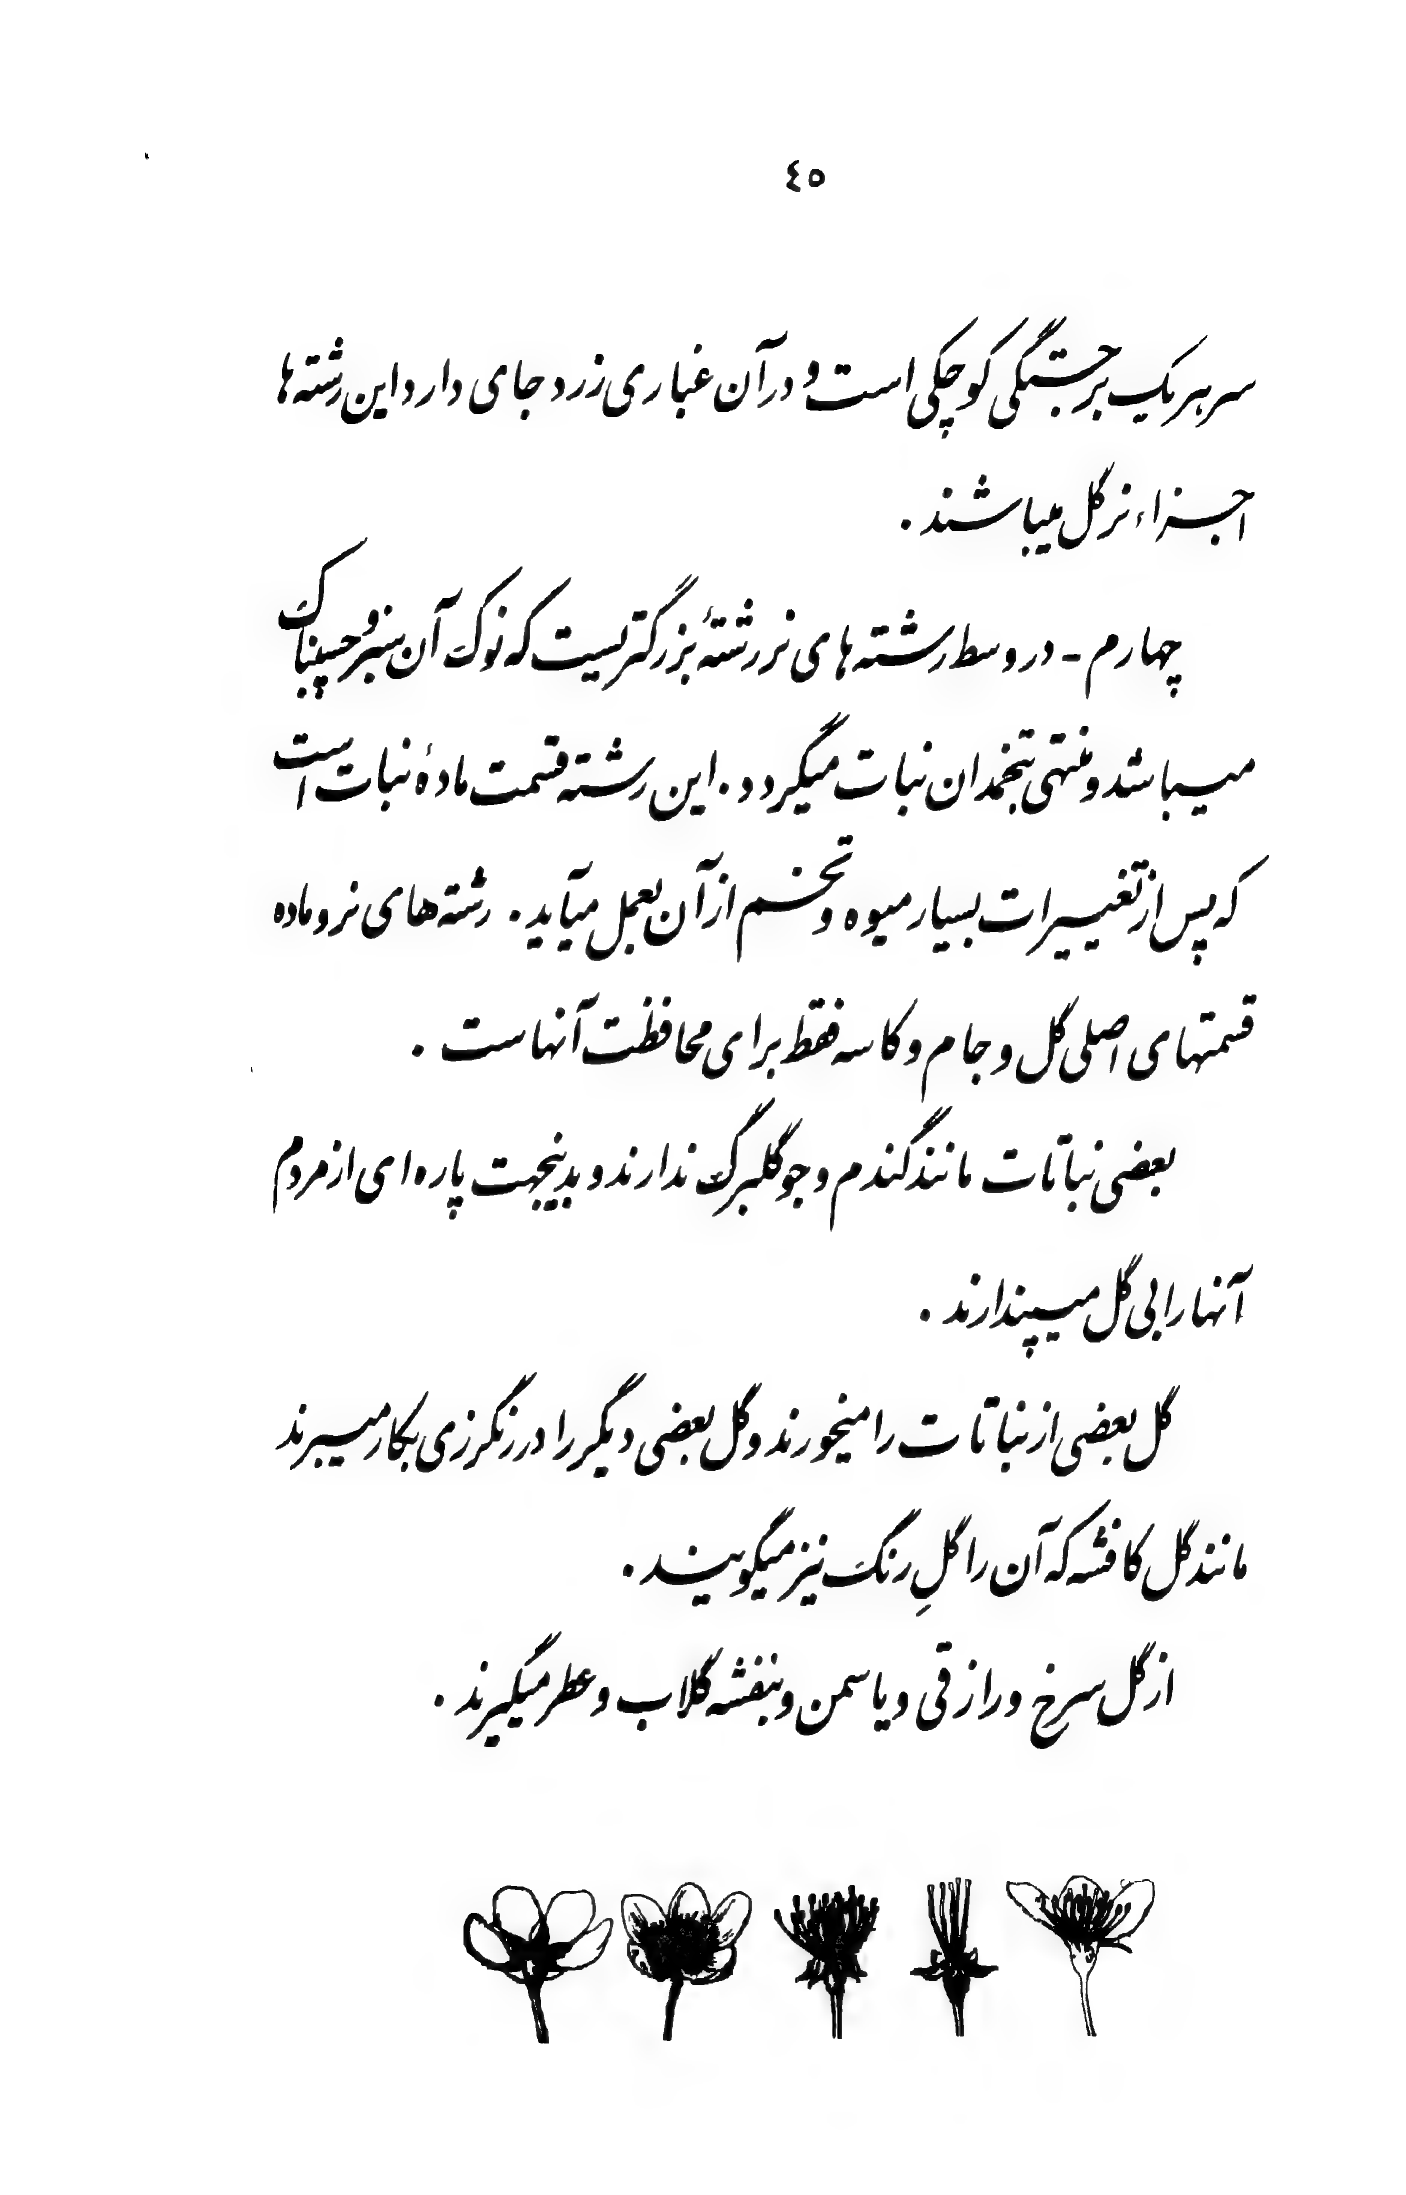 ٤٥
سر هر یک برجستگی کوچکی است و در آن غباری زرد جای دارد این رشته‌ها
اجزاء نر گل میباشند .
چهارم - در وسط رشته‌های نر رشتهٔ بزرگتریست که نوک آن سبز و چسبناک
میباشد و منتهی بتخمدان نبات میگردد . این رشته قسمت مادهٔ نبات است
که پس از تغییرات بسیار میوه و تخم از آن بعمل میآید . رشته‌های نر و ماده
قسمتهای اصلی گل و جام و کاسه فقط برای محافظت آنهاست .
بعضی نباتات مانند گندم و جو گلبرگ ندارند و بدینجهت پاره‌ای از مردم
آنها را بی گل میپندارند .
گل بعضی از نباتات را میخورند و گل بعضی دیگر را در رنگرزی بکار میبرند
مانند گل کافشه که آن را گلِ رنگ نیز میگویند .
از گل سرخ و رازقی و یاسمن و بنفشه گلاب و عطر میگیرند .